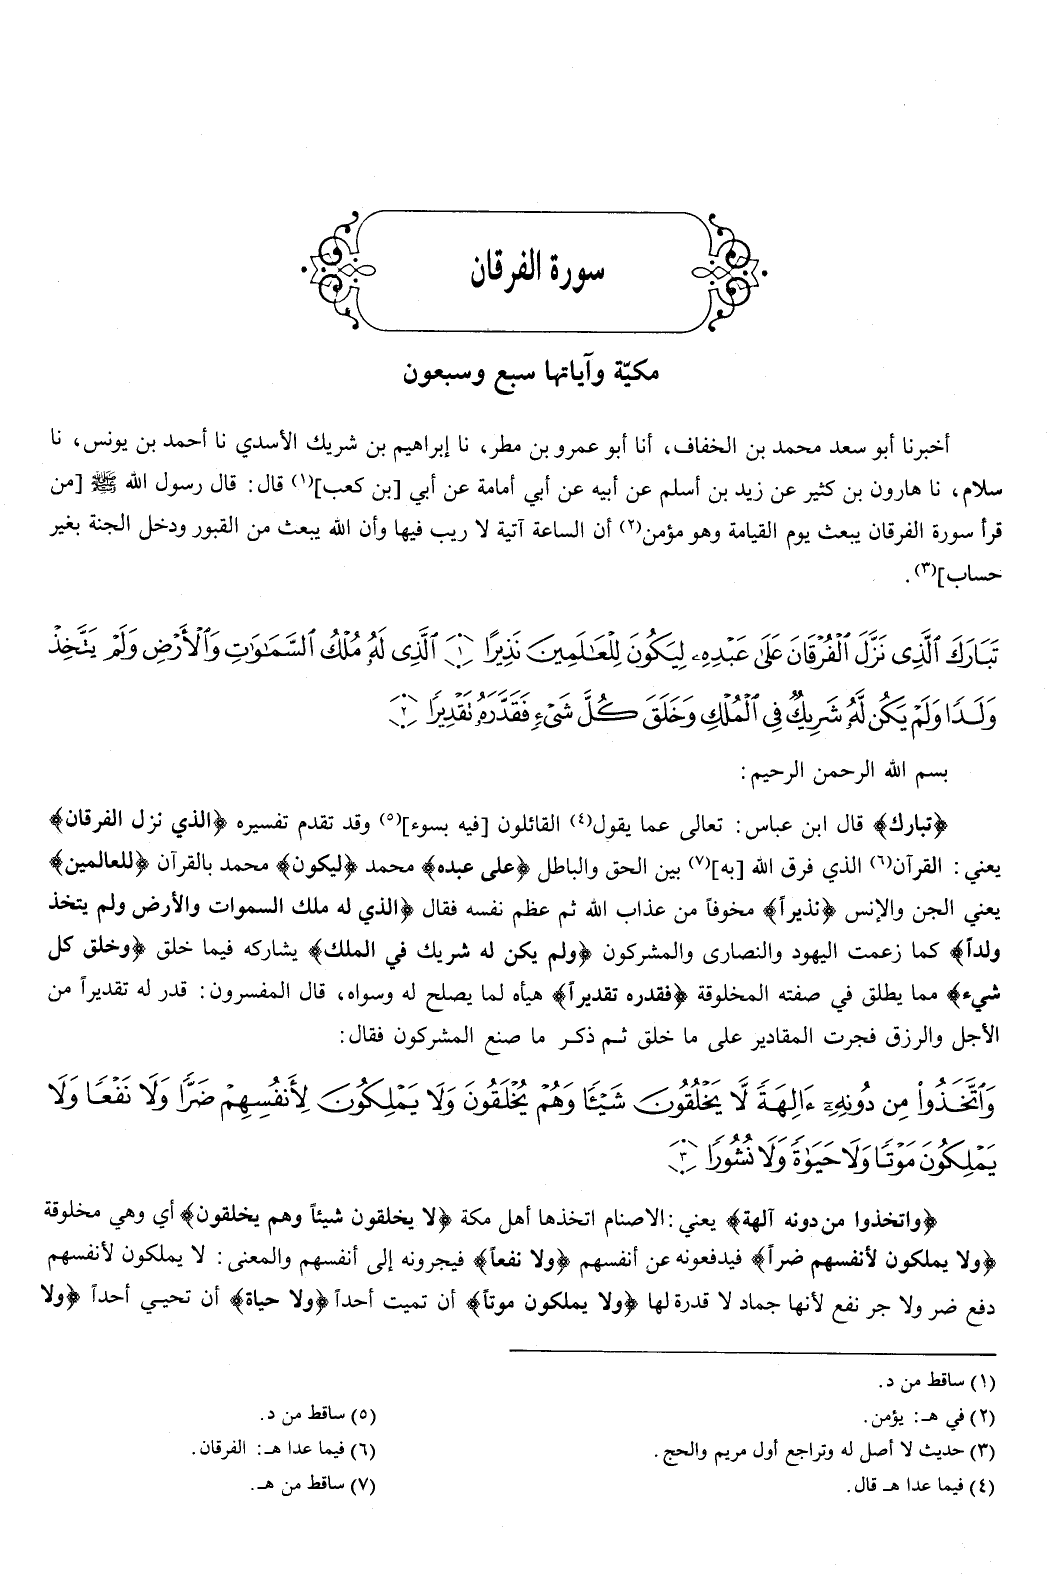 سورة الفرقان
مكيّة وآياتها سبع وسبعون
أخبرنا أبو سعد محمد بن الخفاف، أنا أبو عمرو بن مطر، نا إبراهيم بن شريك الأسدي نا أحمد بن يونس، نا
سلام، نا هارون بن كثير عن زيد بن أسلم عن أبيه عن أبي أمامة عن أبي [بن كعب](١) قال: قال رسول الله ﷺ [من
قرأ سورة الفرقان يبعث يوم القيامة وهو مؤمن(٢) أن الساعة آتية لا ريب فيها وأن الله يبعث من القبور ودخل الجنة بغير
حساب](٣).
تَبَارَكَ ٱلَّذِى نَزَّلَ ٱلْفُرْقَانَ عَلَىٰ عَبْدِهِۦ لِيَكُونَ لِلْعَـٰلَمِينَ نَذِيرًا ١ ٱلَّذِى لَهُۥ مُلْكُ ٱلسَّمَـٰوَٰتِ وَٱلْأَرْضِ وَلَمْ يَتَّخِذْ
وَلَـدًا وَلَمْ يَكُن لَّهُۥ شَرِيكٌ فِى ٱلْمُلْكِ وَخَلَقَ كُلَّ شَىْءٍ فَقَدَّرَهُۥ تَقْدِيرًا ٢
بسم الله الرحمن الرحيم:
﴿تبارك﴾ قال ابن عباس: تعالى عما يقول(٤) القائلون [فيه بسوء](٥) وقد تقدم تفسيره ﴿الذي نزل الفرقان﴾
يعني: القرآن(٦) الذي فرق الله [به](٧) بين الحق والباطل ﴿على عبده﴾ محمد ﴿ليكون﴾ محمد بالقرآن ﴿للعالمين﴾
يعني الجن والإنس ﴿نذيراً﴾ مخوفاً من عذاب الله ثم عظم نفسه فقال ﴿الذي له ملك السموات والأرض ولم يتخذ
ولداً﴾ كما زعمت اليهود والنصارى والمشركون ﴿ولم يكن له شريك في الملك﴾ يشاركه فيما خلق ﴿وخلق كل
شيء﴾ مما يطلق في صفته المخلوقة ﴿فقدره تقديراً﴾ هيأه لما يصلح له وسواه، قال المفسرون: قدر له تقديراً من
الأجل والرزق فجرت المقادير على ما خلق ثم ذكر ما صنع المشركون فقال:
وَٱتَّخَذُوا۟ مِن دُونِهِۦٓ ءَالِهَةً لَّا يَخْلُقُونَ شَيْـًٔا وَهُمْ يُخْلَقُونَ وَلَا يَمْلِكُونَ لِأَنفُسِهِمْ ضَرًّا وَلَا نَفْعًا وَلَا
يَمْلِكُونَ مَوْتًا وَلَا حَيَوٰةً وَلَا نُشُورًا ٣
﴿واتخذوا من دونه آلهة﴾ يعني: الاصنام اتخذها أهل مكة ﴿لا يخلقون شيئاً وهم يخلقون﴾ أي وهي مخلوقة
﴿ولا يملكون لأنفسهم ضراً﴾ فيدفعونه عن أنفسهم ﴿ولا نفعاً﴾ فيجرونه إلى أنفسهم والمعنى: لا يملكون لأنفسهم
دفع ضر ولا جر نفع لأنها جماد لا قدرة لها ﴿ولا يملكون موتاً﴾ أن تميت أحداً ﴿ولا حياة﴾ أن تحيي أحداً ﴿ولا
(١) ساقط من د.
(٢) في هـ: يؤمن.
(٣) حديث لا أصل له وتراجع أول مريم والحج.
(٤) فيما عدا هـ قال.
(٥) ساقط من د.
(٦) فيما عدا هـ: الفرقان.
(٧) ساقط من هـ.